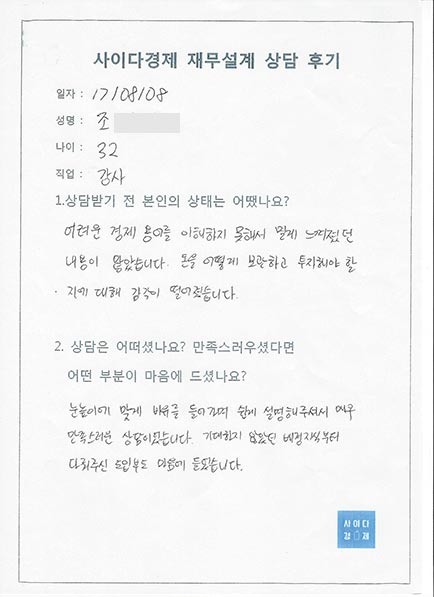 사이다경제 재무설계 상담 후기
일자 : 17/08/08
성명 : 조
나이 : 32
직업 : 강사
1.상담받기 전 본인의 상태는 어땠나요?
어려운 경제 용어를 이해하지 못해서 멀게 느껴졌던
내용이 많았습니다. 돈을 어떻게 보관하고 투자해야 할
지에 대해 감각이 떨어졌습니다.
2. 상담은 어떠셨나요? 만족스러우셨다면
어떤 부분이 마음에 드셨나요?
눈높이에 맞게 비유를 들어가며 쉽게 설명해주셔서 매우
만족스러운 상담이었습니다. 기대하지 않았던 배경지식부터
다뤄주신 도입부도 마음에 들었습니다.
사이다
경제